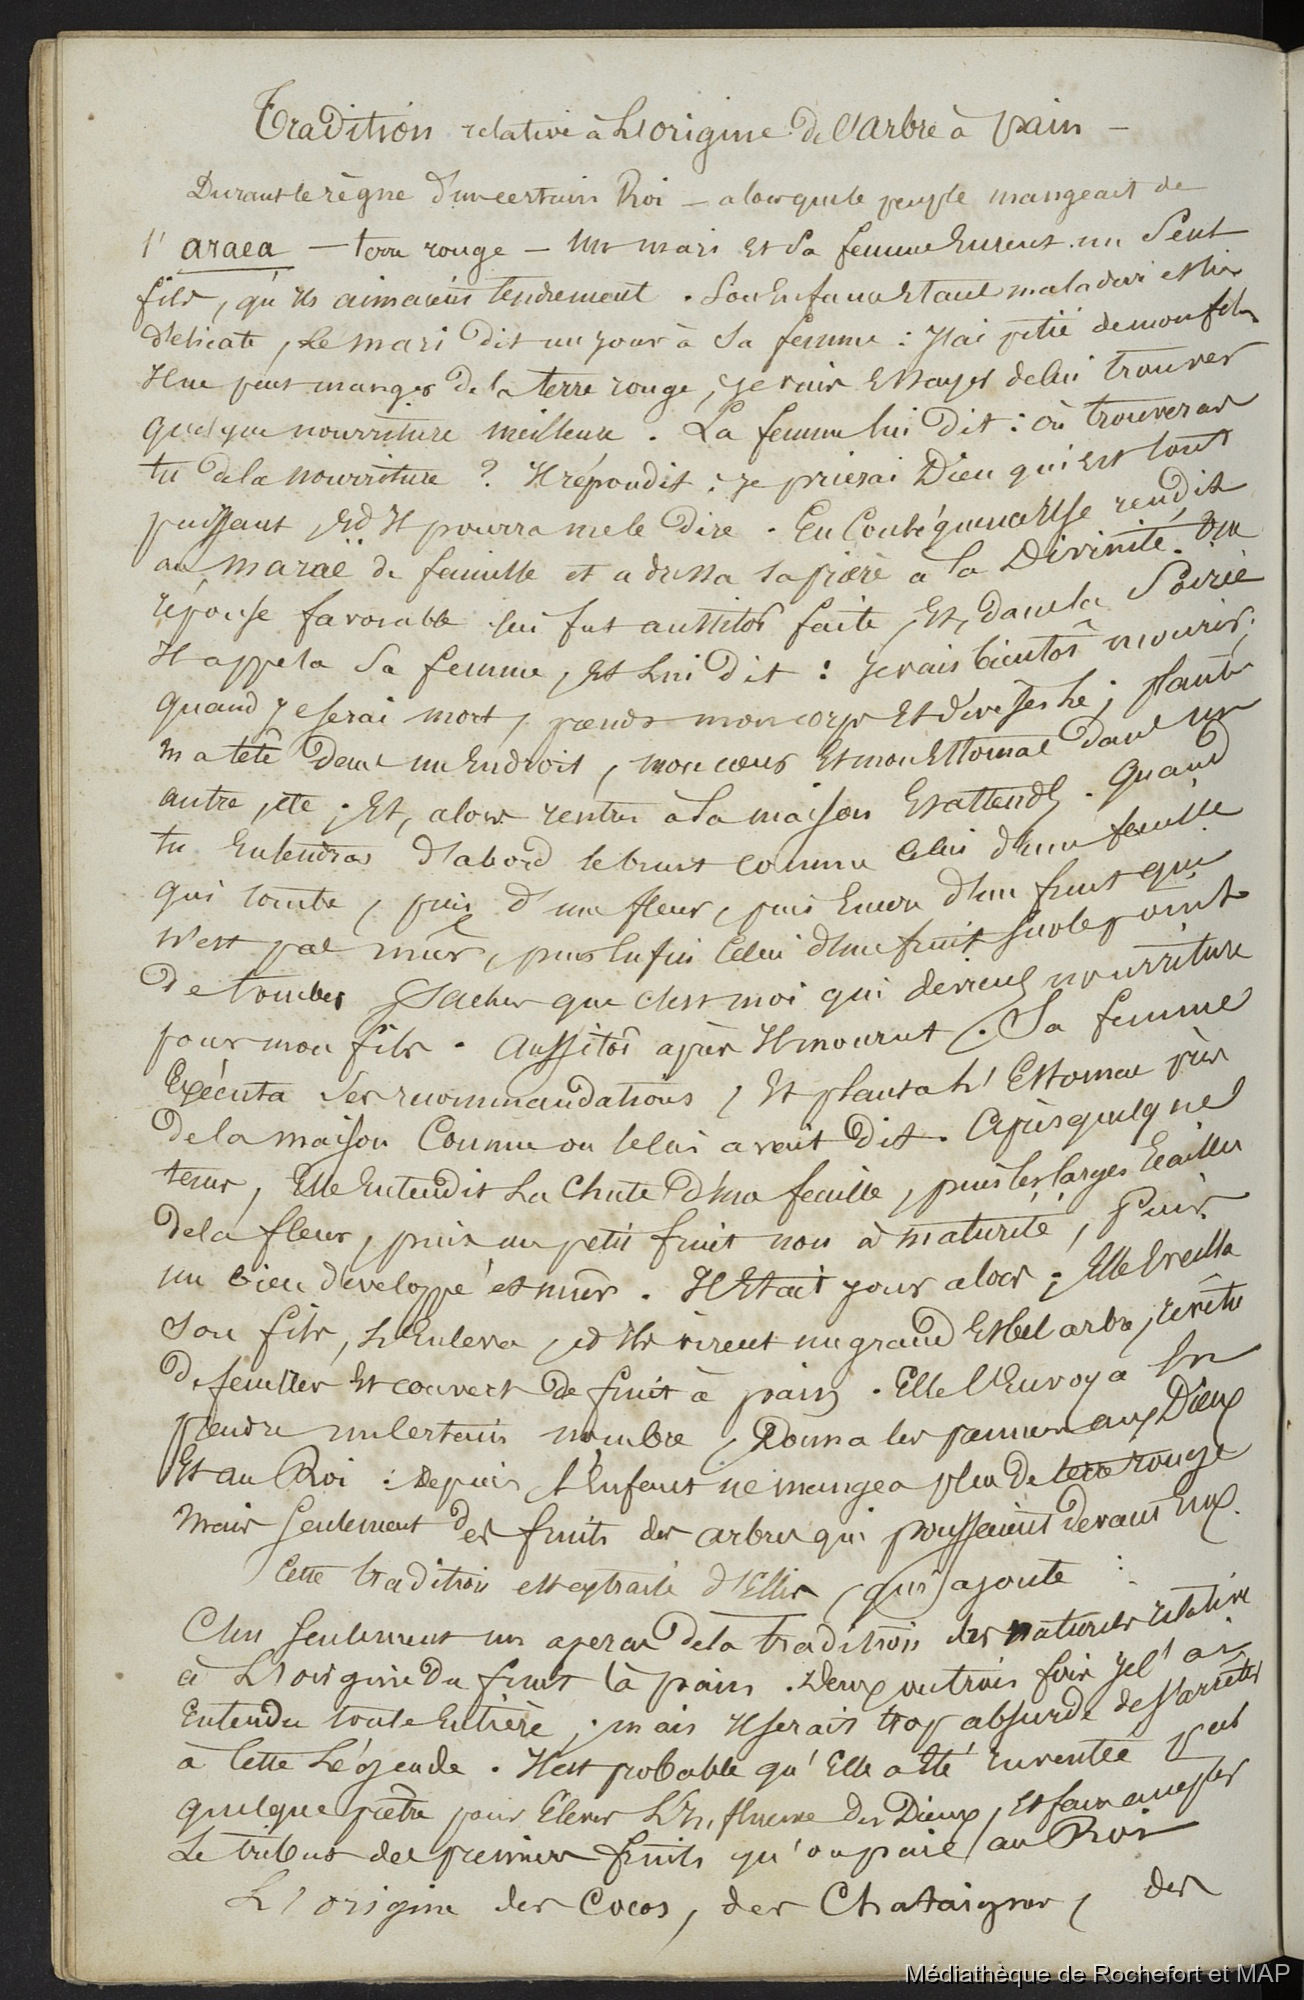 Tradition relative à L'origine de l'Arbre à pain –
Durant le règne d'un certain Roi – alors que le peuple mangeait de
l' araea – terre rouge – Un mari et sa femme Eurent un seul
fils, qu'ils aimaient tendrement . Son Enfant Etant maladif et très
délicate, Le mari dit un jour à sa femme : J'ai pitié de mon fils
Il ne peut manger de la terre rouge, je vais Essayer de lui trouver
quelque nourriture meilleure . La femme lui dit : où trouveras
tu de la nourriture ? Il répondit : je prierai Dieu qui Est tout
puissant, Et Il pourra me le dire . En Conséquence Il se rendit
au maraë de famille et adressa sa prière à la Divinité. Une
réponse favorable lui fut aussitôt faite, Et, dans la Soirée
Il appela sa femme, Et lui dit : je vais bientôt mourir,
quand je serai mort, prends mon corps Et divise le ; plante
ma tête dans un Endroit, mon cœur Et mon Estomac dans un
autre, etc. Et, alors rentre à la maison Et attends . Quand
tu Entendras d'abord le bruit comme celui d'une feuille
qui tombe, puis d'une fleur, puis Encore d'un fruit qui
n'est pas mûr, puis Enfin Celui d'un fruit sur le point
de tomber Saches que c'est moi qui deviens nourriture
pour mon fils . Aussitôt après Il mourut . Sa femme
Exécuta ses recommandations, Et planta L'Estomac près
de la maison Comme on le lui avait dit. Après quelque
tems, Elle Entendit La Chute d'une feuille, puis les larges Ecailles
de la fleur, puis un petit fruit non à maturité, Puis
un bien développé et mûr . Il Etait jour alors ; Elle Eveilla
son fils, L'Enleva, Et Ils virent un grand Et bel arbre, revêtu
de feuilles Et couvert de fruit à pain . Elle l'Envoya En
prendre un certain nombre, Donna les premiers aux Dieux
Et au Roi : depuis L'Enfant ne mangea plus de terre rouge
mais seulement des fruits des arbres qui poussaient devant Eux.
Cette tradition est extraite d'Ellis, qui ajoute :
C'est seulement un aperçu de la tradition des naturels relative
à L'origine du fruit à pain . Deux ou trois fois je l'ai
Entendu toute Entière ; mais Il serait trop absurde de s'arrêter
à cette Légende . Il est probable qu'Elle a Eté inventée par
quelque prêtre pour Elever L'Influence des Dieux, Et faire accepter
Le tribut des premiers fruits qu'on paie au Roi
L'origine des Cocos, des Chataignes, des
Médiathèque de Rochefort et MAP